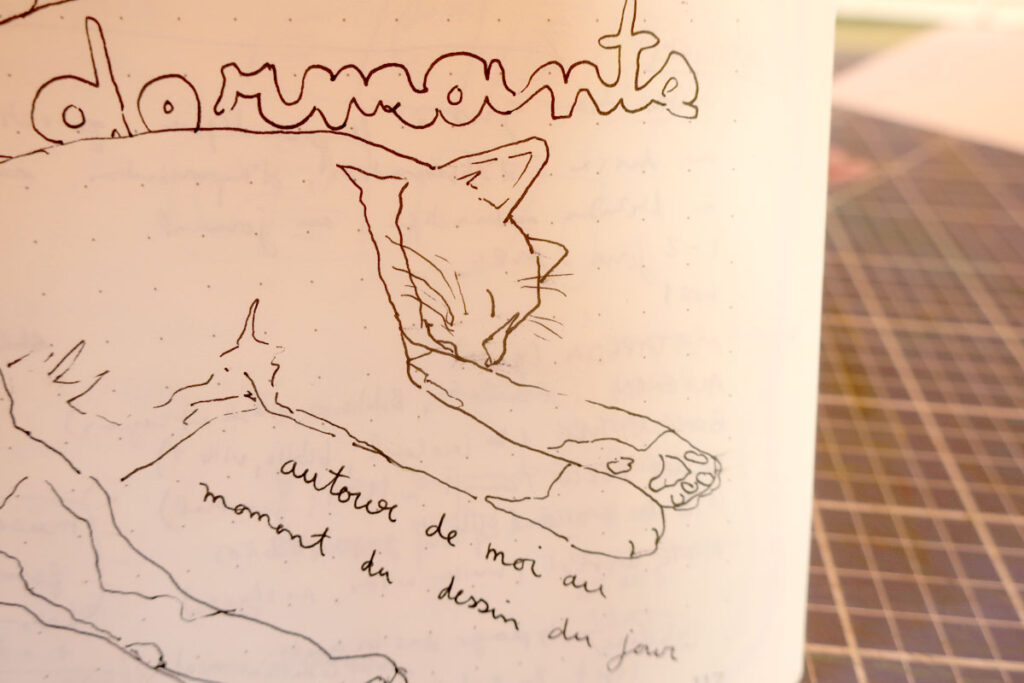 dormante
autour de moi au
moment du dessin du jour